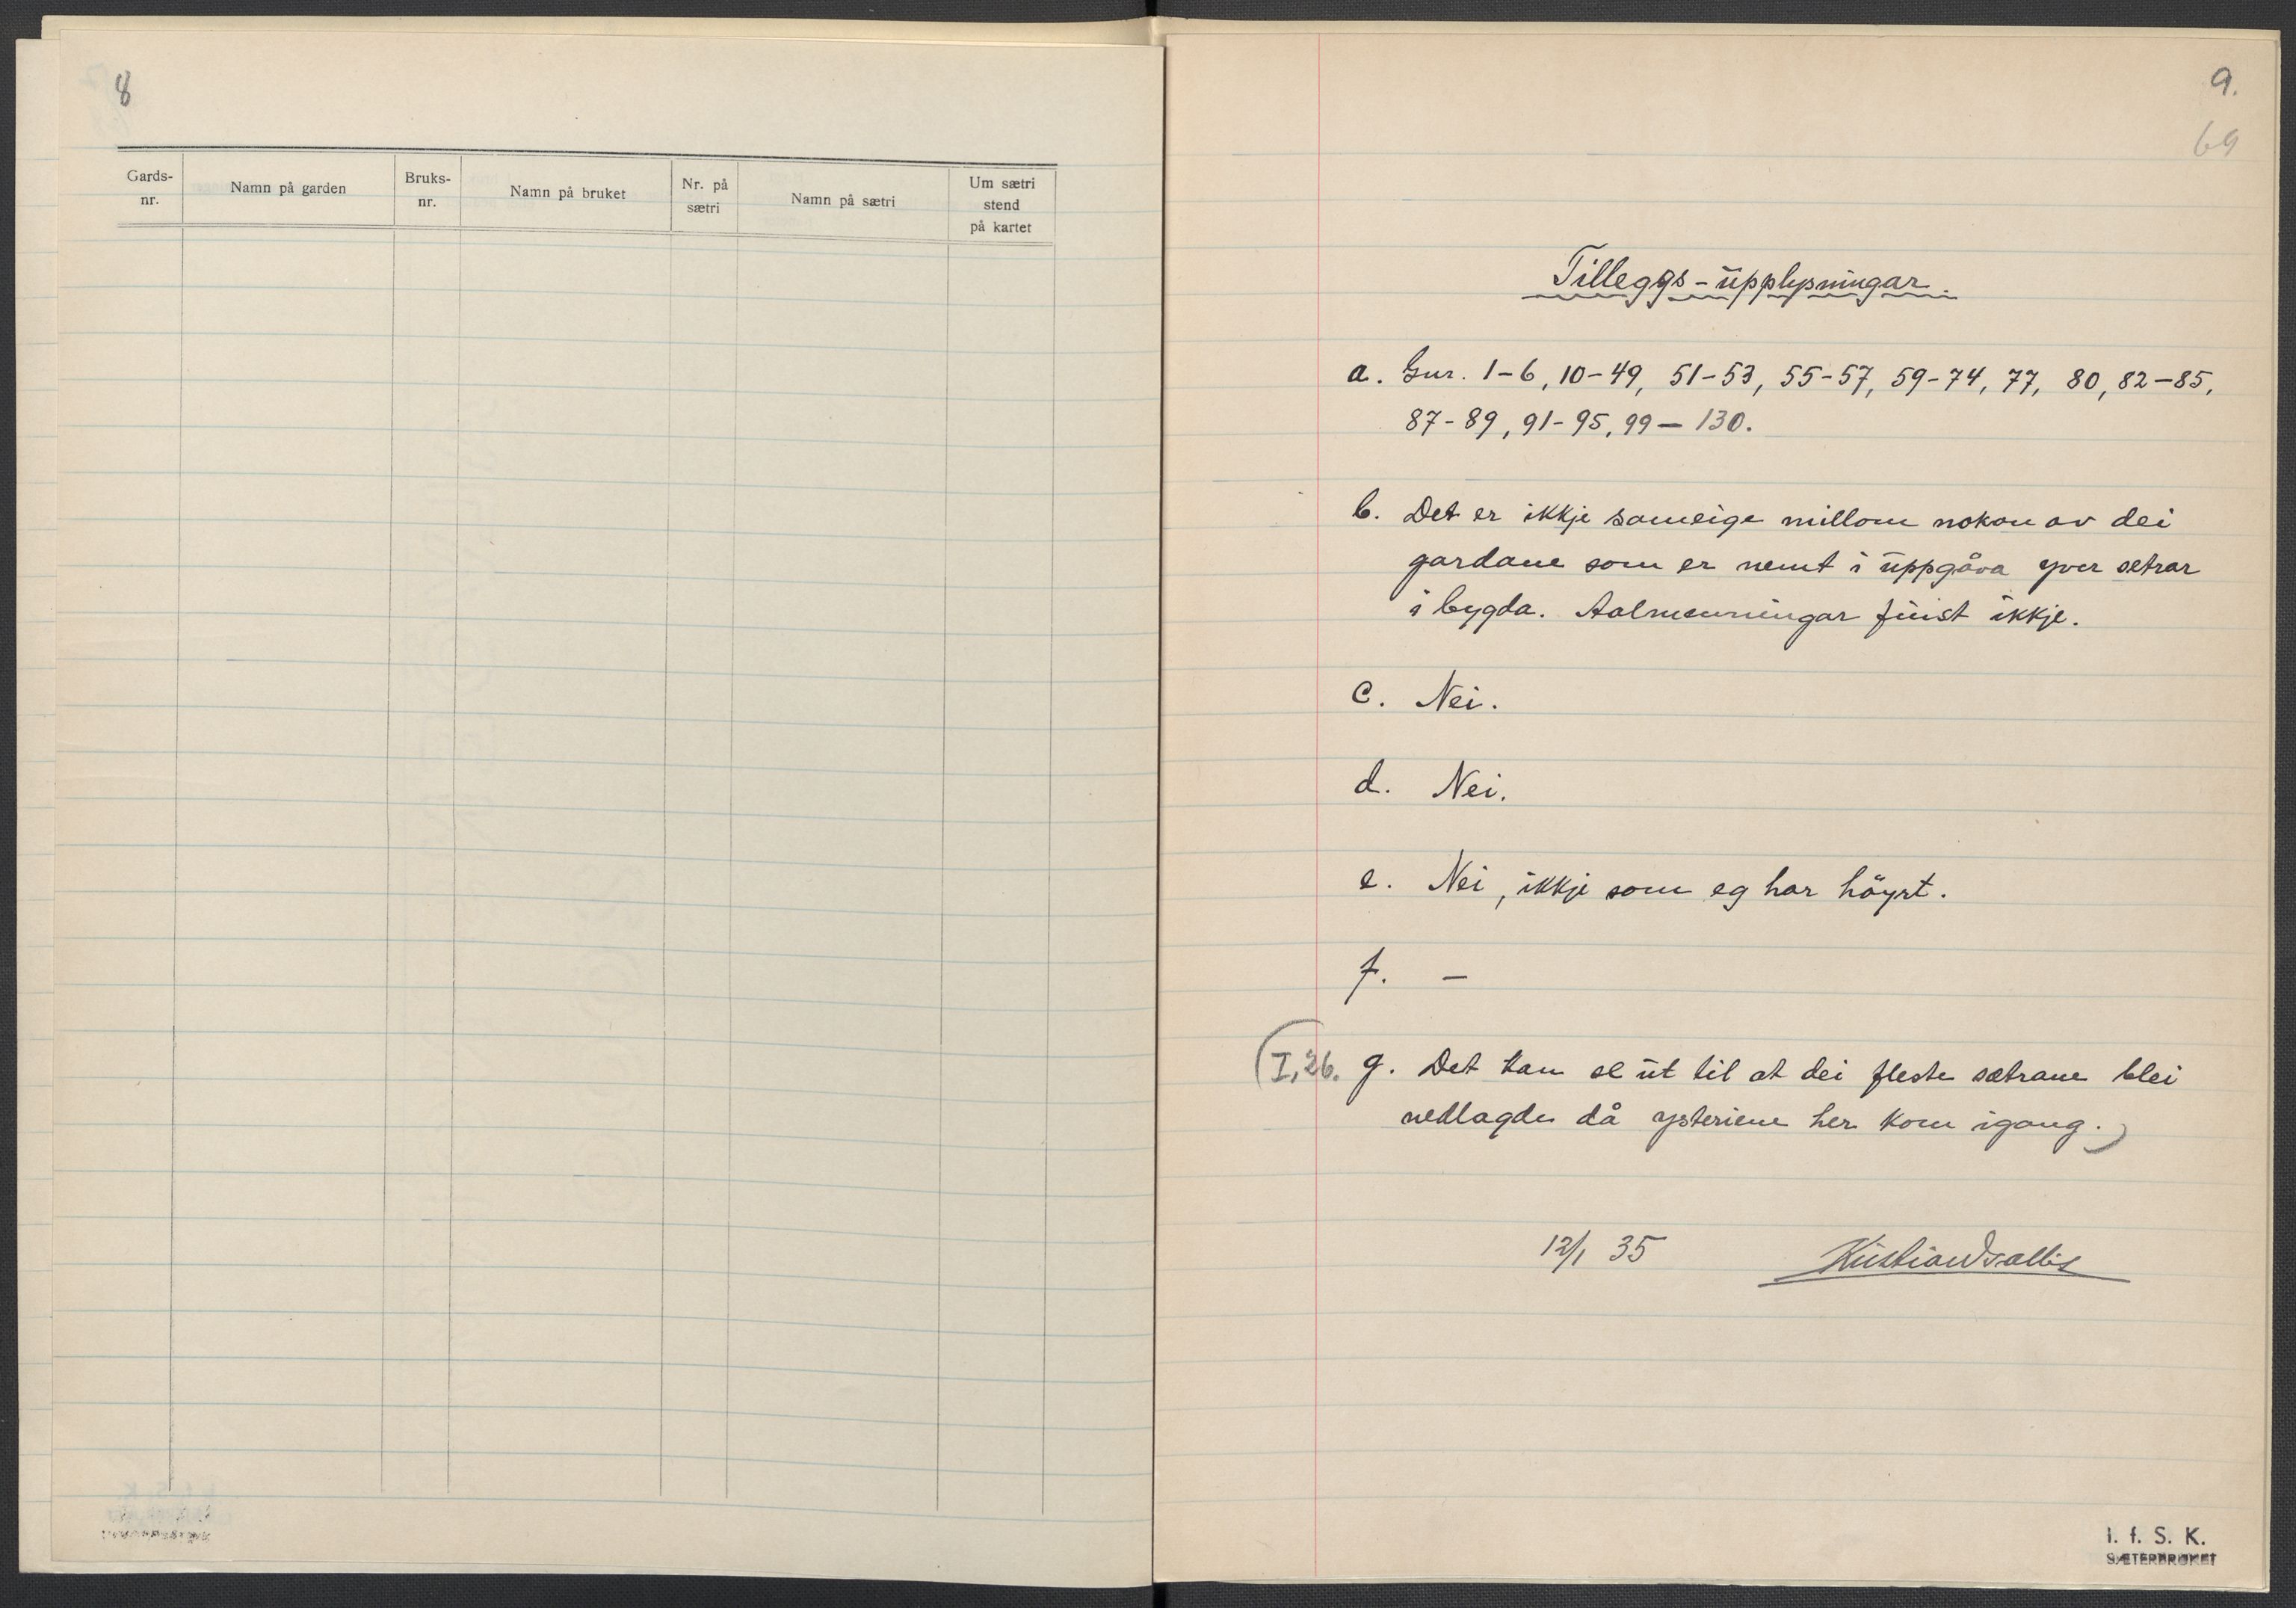 8
Gards-
nr.
Namn på garden
Bruks-
nr.
Namn på bruket
Nr. på
sætri
Namn på sætri
Um sætri
stend
på kartet
9.
69
Tilleggs-upplysningar.
a. Gnr. 1-6, 10-49, 51-53, 55-57, 59-74, 77, 80, 82-85,
87-89, 91-95, 99-130.
b. Det er ikkje sameige millom nokon av dei
gardane som er nemt i uppgåva yver setrar
i bygda. Aalmenningar finst ikkje.
c. Nei.
d. Nei.
e. Nei, ikkje som eg har höyrt.
f. -
(I,26. g. Det kan se ut til at dei fleste sætrane blei
nedlagde då ysteriene her kom igang.)
12/1 35
I. f. S. K.
SÆTERBRUKET